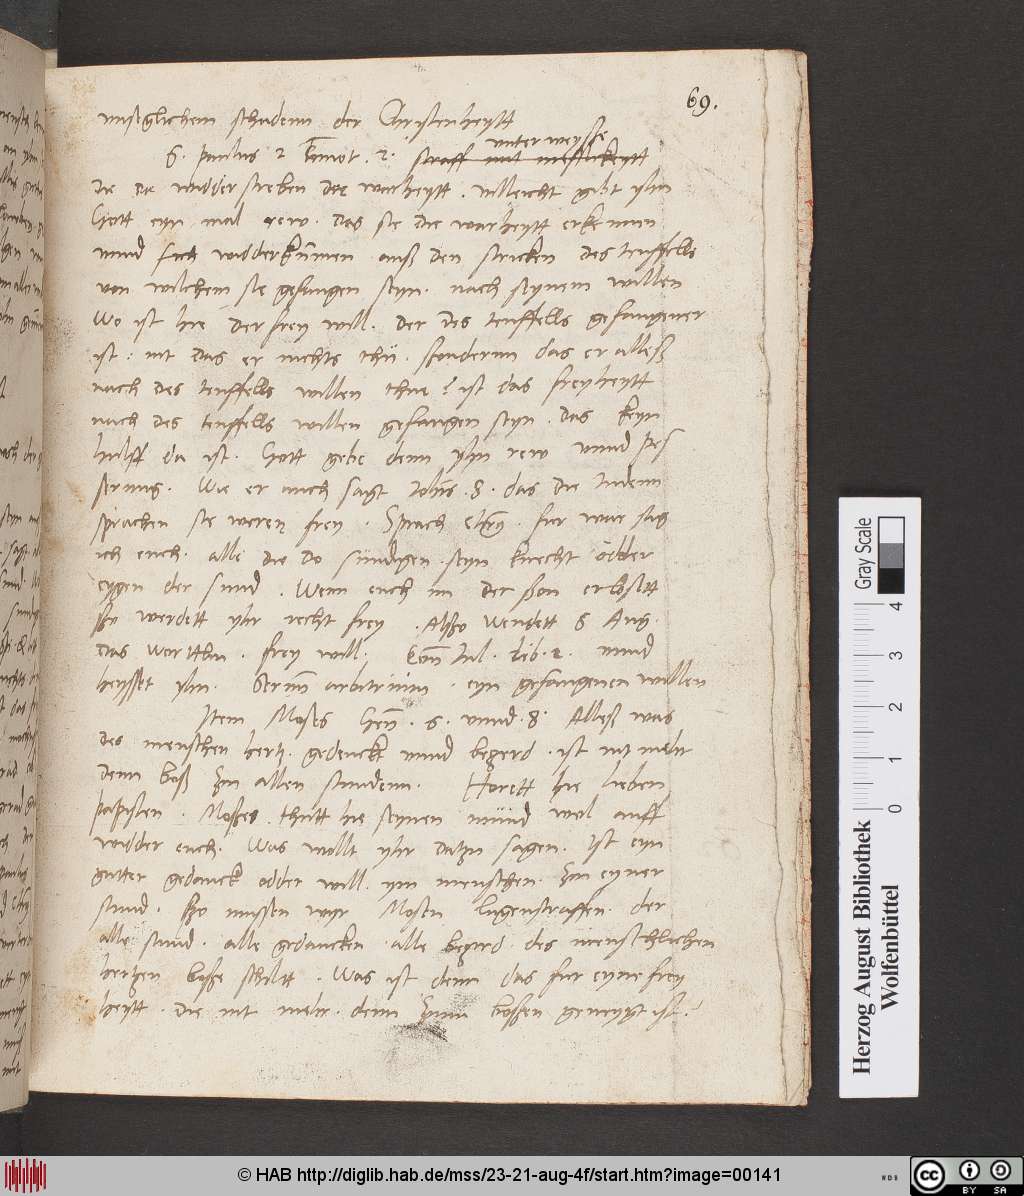 69.
unseglichem schadenn der Christenheytt
S. paulus 2 Timot. 2. straff mit mesfickeytt unterweysse
die die widder streben der warheytt. villeicht gibt yhn
Gott eyn mal rew. das sie die warheytt erkennen
unnd sich widderkummen auß den stricken des teuffells
von wilchem sie gefangen seyn. nach seynem willen
Wo ist hie der frey will. der des teuffells gefangener
ist: nit das er nichts thu. sondernn das er alleß
nach des teuffells willen thue? ist das freyheytt
nach des teuffells willen gefangen seyn. das keyn
hulff da ist. Gott gebe denn yhn rew unnd bes
serung. Wie er auch sagt Iohis. 8. das die Iudenn
sprachen sie weren frey. Sprach er. fur war sag
ich euch. alle die do sundigen seyn knecht odder
eygen der sund. Wenn euch nu der sson erlossett
sso werdett yhr recht frey. Alsso wendett S Aug.
das worttlin. frey will. Con Iul. Lib. 2. unnd
heysset yhn. Servum arbitrium. eyn gefangenen willen
Item Moses Gen. 6. unnd. 8. Alleß was
des menschen hertz. gedenckt unnd begerd. ist nit mehr
denn boß zu allen stundenn. Horett hie lieben
papisten. Mosses thutt hie seynen mund wol auff
widder euch. Was wollt yhr datzu sagen. Ist eyn
gutter gedanck odder will ym menschen. zu eyner
stund. sso mussen wyr Mosen lugenstraffen. der
alle stund. alle gedancken. alle begird. des menschlichen
hertzen bosse schiltt. Was ist denn das fur eyne frey
heytt. die nit mehr. denn zum bossen geneygt ist?
Herzog August Bibliothek
Wolfenbüttel
0 1 2 3 4
Gray Scale
© HAB http://diglib.hab.de/mss/23-21-aug-4f/start.htm?image=00141
WDB
cc BY SA